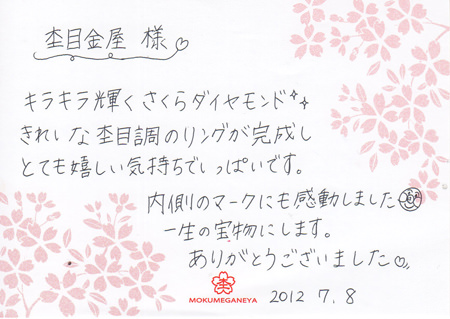 杢目金屋 様♡
キラキラ輝くさくらダイヤモンド✨
きれいな杢目調のリングが完成し
とても嬉しい気持ちでいっぱいです。
内側のマークにも感動しました
一生の宝物にします。
ありがとうございました♡
MOKUMEGANEYA
2012 7. 8